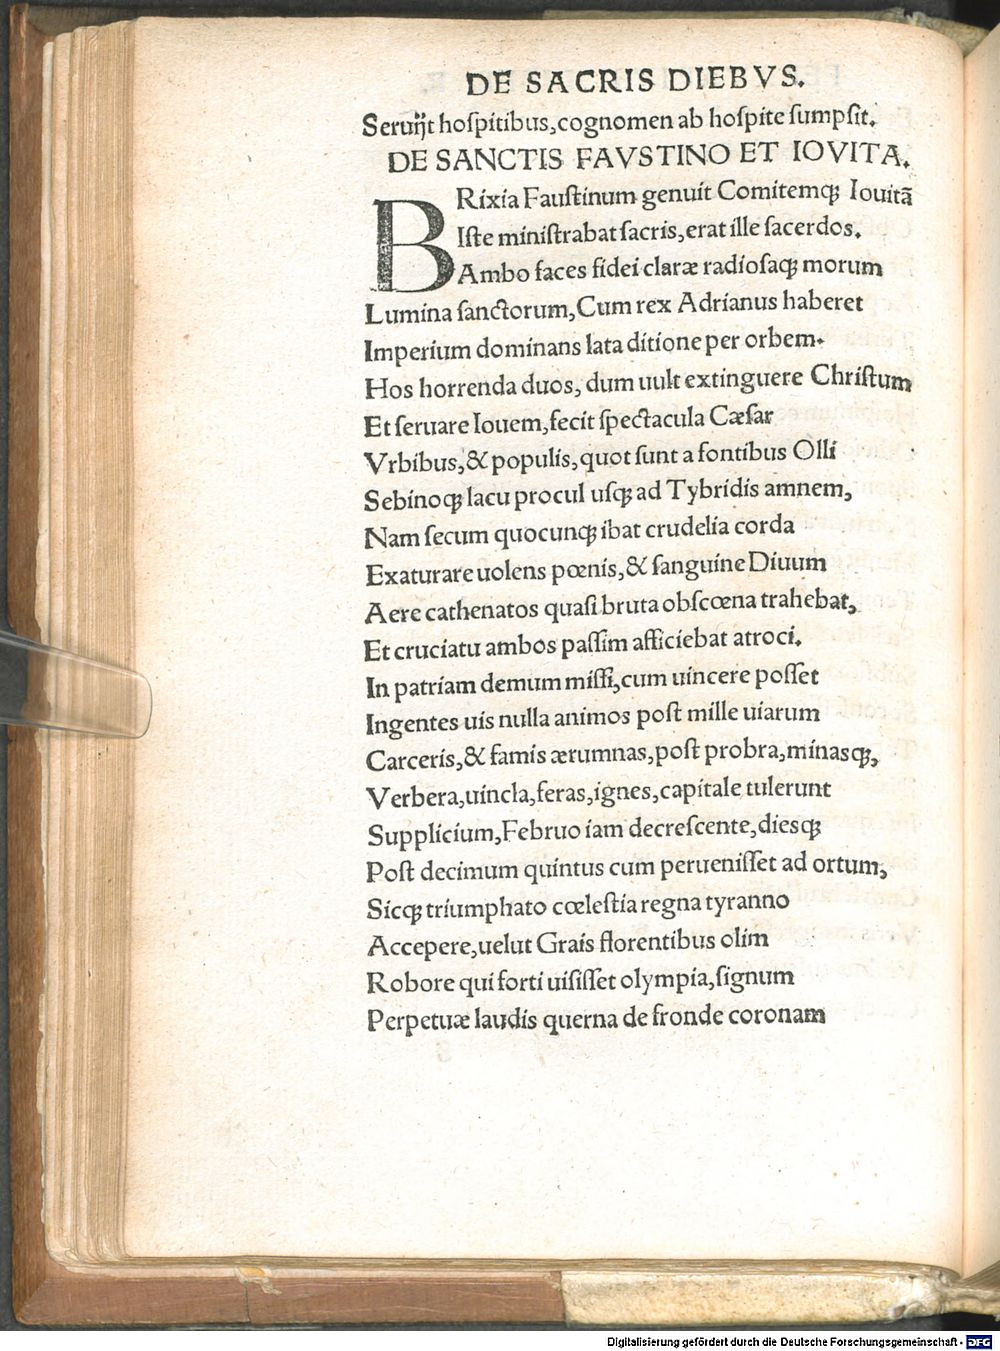 DE SACRIS DIEBVS.
Seruĳt hoſpitibus, cognomen ab hoſpite ſumpſit.
DE SANCTIS FAVSTINO ET IOVITA.
BRixia Fauſtinum genuit Comitemqꝫ Iouitã
Iſte miniſtrabat ſacris, erat ille ſacerdos.
Ambo faces fidei claræ radioſaqꝫ morum
Lumina ſanctorum, Cum rex Adrianus haberet
Imperium dominans lata ditione per orbem.
Hos horrenda duos, dum uult extinguere Chriſtum
Et ſeruare Iouem, fecit ſpectacula Cæſar
Vrbibus, & populis, quot ſunt a fontibus Olli
Sebinoqꝫ lacu procul uſqꝫ ad Tybridis amnem,
Nam ſecum quocunqꝫ ibat crudelia corda
Exaturare uolens pœnis, & ſanguine Diuum
Aere cathenatos quaſi bruta obſcœna trahebat,
Et cruciatu ambos paſſim afficiebat atroci.
In patriam demum miſſi, cum uincere poſſet
Ingentes uis nulla animos poſt mille uiarum
Carceris, & famis ærumnas, poſt probra, minasqꝫ,
Verbera, uincla, feras, ignes, capitale tulerunt
Supplicium, Februo iam decreſcente, diesqꝫ
Poſt decimum quintus cum perueniſſet ad ortum,
Sicqꝫ triumphato cœleſtia regna tyranno
Accepere, uelut Grais florentibus olim
Robore qui forti uiſiſſet olympia, ſignum
Perpetuæ laudis querna de fronde coronam
Digitalisierung gefördert durch die Deutsche Forschungsgemeinschaft - DFG